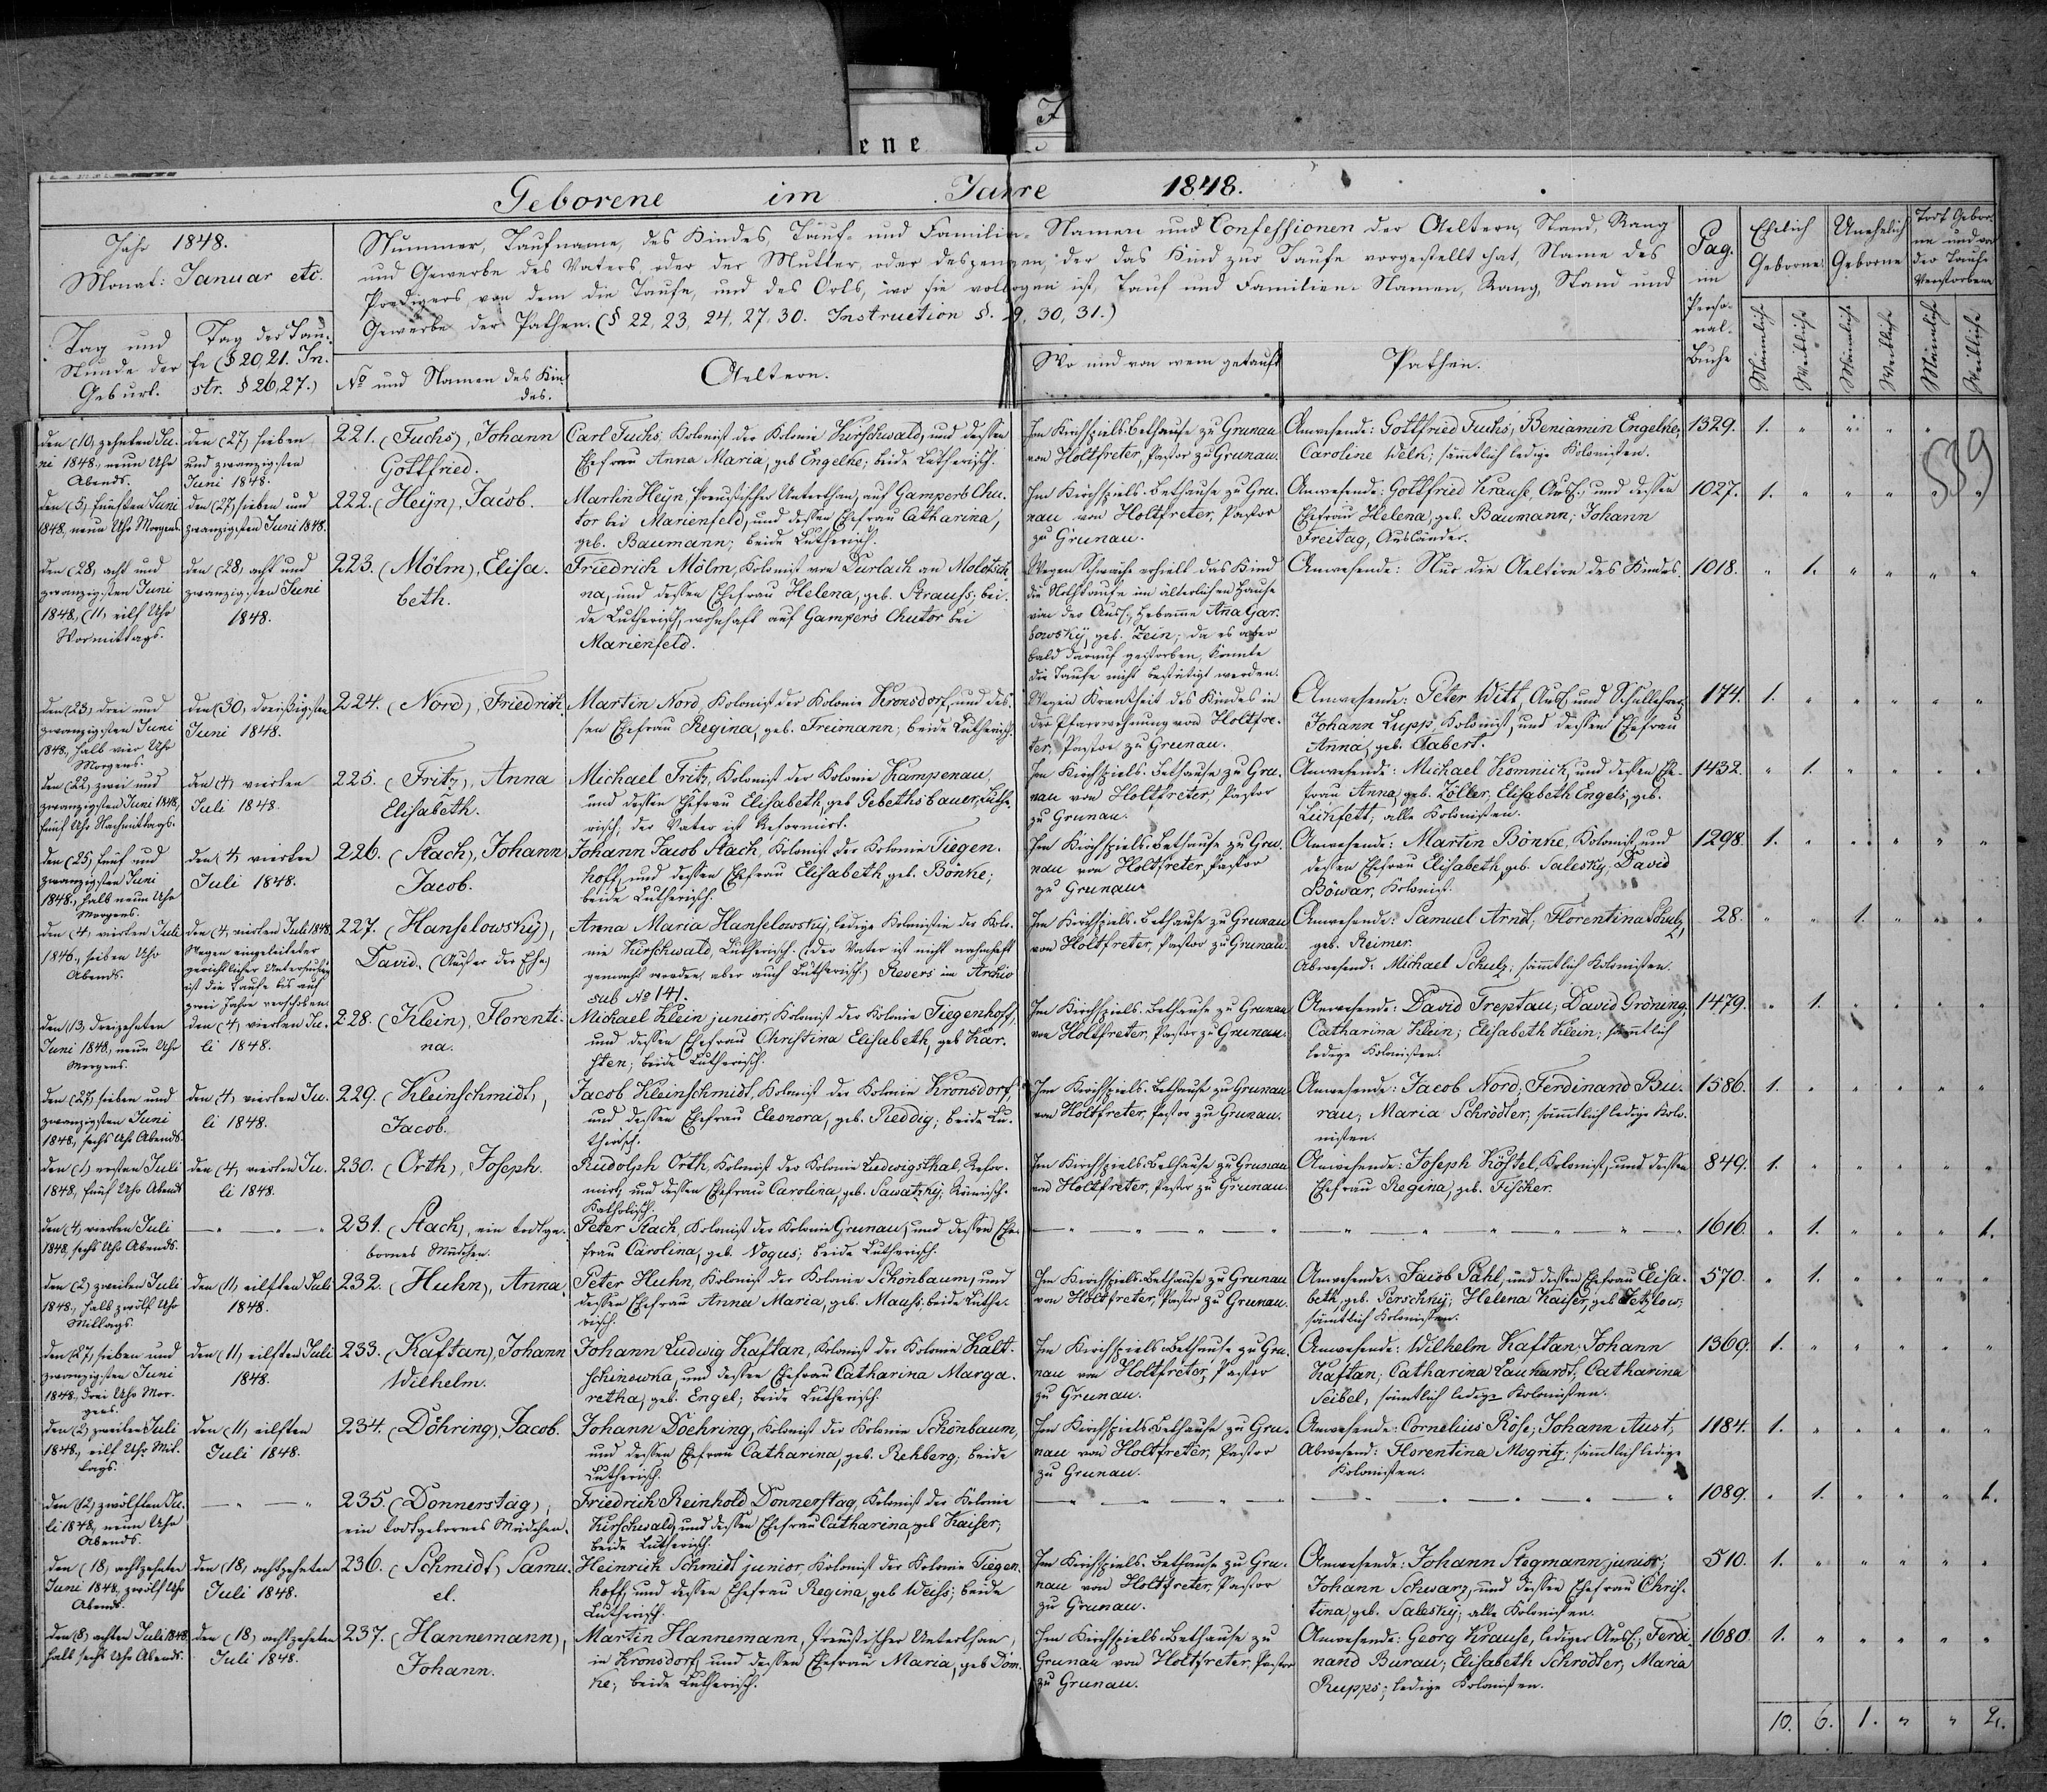 ene
Geborene im Jahre 1848.
Jahr 1848.
Monat: Januar etc.
Tag und
Stunde der
Geburt.
Tag der Tau-
fe (§ 20, 21. In-
str. § 26, 27.)
Nummer, Taufname, des Kindes, Tauf- und Familien-Namen und Confessionen der Aeltern, Stand, Rang
und Gewerbe des Vaters, oder der Mutter, oder desjenigen, der das Kind zur Taufe vorgestellt hat, Name des
Predigers von dem die Taufe, und des Orts, wo sie vollzogen ist, Tauf und Familien-Namen, Rang, Stand und
Gewerbe der Pathen. (§ 22, 23, 24, 27, 30. Instruction §. 29, 30, 31.)
No und Namen des Kin-
des.
Aeltern.
Wo und von wem getauft
Pathen.
Pag.
im
Perso-
nal-
Buche
Ehelich
Geborne
Unehelich
Geborne
Todt Gebor-
ne und vor
der Taufe
Verstorbene
Männlich
Weibliche
Männlich
Weibliche
Männlich
Weibliche
539
den (10) zehnten Ju-
ni 1848, neun Uhr
Abends.
den (27) sieben
und zwanzigsten
Juni 1848.
221. (Fuchs), Johann
Gottfried.
Carl Fuchs, Kolonist der Kolonie Kirschwald, und dessen
Ehefrau Anna Maria, geb. Engelke; beide Lutherisch.
Im Kirchspiels-Bethause zu Grunau
von Holtfreter, Pastor zu Grunau.
Anwesende: Gottfried Fuchs, Beniamin Engelke,
Caroline Welk; sämmtlich ledige Kolonisten.
1329. 1. " " " " "
den (5) fünften Juni
1848, neun Uhr Morgens.
den (27) sieben und
zwanzigsten Juni 1848.
222. (Heyn), Jacob.
Martin Heyn, Preußischer Unterthan, auf Gampers Chu-
tor bei Marienfeld, und dessen Ehefrau Catharina,
geb. Baumann; beide Lutherisch.
Im Kirchspiels-Bethause zu Gru-
nau von Holtfreter, Pastor
zu Grunau.
Anwesende: Gottfried Krause, Ausl., und dessen
Ehefrau Helena, geb. Baumann; Johann
Freitag, Ausländer.
1027. 1. " " " " "
den (28) acht und
zwanzigsten Juni
1848, (11) eilf Uhr
Vormittags.
den (28) acht und
zwanzigsten Juni
1848.
223. (Mölm), Elisa-
beth.
Friedrich Mölm, Kolonist von Durlach an Molotsch-
na, und dessen Ehefrau Helena, geb. Strauss; bei-
de Lutherisch, wohnhaft auf Gampers Chutor bei
Marienfeld.
Wegen Schwäche erhielt das Kind
die Nothtaufe im älterlichen Hause
von der Ausl., Hebamme Anna Gar-
bowsky, geb. Zein; da es aber
bald darauf gestorben, konnte
die Taufe nicht bestätigt werden.
Anwesende: Nur die Aeltern des Kindes.
1018. " 1. " " " "
den (23) drei und
zwanzigsten Juni
1848, halb vier Uhr
Morgens.
den (30) dreißigsten
Juni 1848.
224. (Nord), Friedrich.
Martin Nord, Kolonist der Kolonie Kronsdorf, und des-
sen Ehefrau Regina, geb. Freimann; beide Lutherisch.
Wegen Krankheit des Kindes in
der Pfarrwohnung von Holtfre-
ter, Pastor zu Grunau.
Anwesende: Peter Witt, Ausl. und Schullehrer;
Johann Lupp, Kolonist, und dessen Ehefrau
Anna, geb. Tabert.
174. 1. " " " " "
den (22) zwei und
zwanzigsten Juni 1848,
fünf Uhr Nachmittags.
den (4) vierten
Juli 1848.
225. (Fritz), Anna
Elisabeth.
Michael Fritz, Kolonist der Kolonie Kampenau,
und dessen Ehefrau Elisabeth, geb. Gebethsbauer, Luthe-
risch; der Vater ist Reformirt.
Im Kirchspiels-Bethause zu Gru-
nau von Holtfreter, Pastor
zu Grunau.
Anwesende: Michael Komnick, und dessen Ehe-
frau Anna, geb. Zöller, Elisabeth Engels, geb.
Lickfett; alle Kolonisten.
1432. " 1. " " " "
den (25) fünf und
zwanzigsten Juni
1848, halb neun Uhr
Morgens.
den (4) vierten
Juli 1848.
226. (Stach), Johann
Jacob.
Johann Jacob Stach, Kolonist der Kolonie Tiegen-
hoff, und dessen Ehefrau Elisabeth, geb. Bönke;
beide Lutherisch.
Im Kirchspiels-Bethause zu Gru-
nau von Holtfreter, Pastor
zu Grunau.
Anwesende: Martin Bönke, Kolonist, und
dessen Ehefrau Elisabeth, geb. Salesky, David
Böwar, Kolonist.
1298. 1. " " " " "
den (4) vierten Juli
1846, sieben Uhr
Abends.
den (4) vierten Juli 1848.
Wegen eingeleiteter
gerichtlicher Untersuchung
ist die Taufe bis auf
zwei Jahre verschoben.
227. (Hanselowsky),
David. (Außer der Ehe)
Anna Maria Hanselowsky, ledige Kolonistin der Kolo-
nie Kirschwald, Lutherisch. (der Vater ist nicht nahmhaft
gemacht worden, aber auch Lutherisch) Revers im Archiv
sub No 141.
Im Kirchspiels-Bethause zu Grunau
von Holtfreter, Pastor zu Grunau.
Anwesende: Samuel Arndt, Florentina Schulz,
geb. Reimer.
Abwesend: Michael Schulz; sämmtlich Kolonisten.
28. " " 1. " " "
den (13) dreizehnten
Juni 1848, neun Uhr
Morgens.
den (4) vierten Ju-
li 1848.
228. (Klein), Florenti-
na.
Michael Klein junior, Kolonist der Kolonie Tiegenhoff,
und dessen Ehefrau Christina Elisabeth, geb. Kar-
sten; beide Lutherisch.
Im Kirchspiels-Bethause zu Grunau
von Holtfreter, Pastor zu Grunau.
Anwesende: David Treptau; David Gröning,
Catharina Klein; Elisabeth Klein; sämmtlich
ledige Kolonisten.
1479. " 1. " " " "
den (27) sieben und
zwanzigsten Juni
1848, sechs Uhr Abends.
den (4) vierten Ju-
li 1848.
229. (Kleinschmidt),
Jacob.
Jacob Kleinschmidt, Kolonist der Kolonie Kronsdorf,
und dessen Ehefrau Eleonora, geb. Reddig; beide Lu-
therisch.
Im Kirchspiels-Bethause zu Grunau
von Holtfreter, Pastor zu Grunau.
Anwesende: Jacob Nord; Ferdinand Bu-
rau, Maria Schrödter; sämmtlich ledige Kolo-
nisten.
1586. 1. " " " " "
den (1) ersten Juli
1848, fünf Uhr Abends
den (4) vierten Ju-
li 1848.
230. (Orth), Joseph.
Rudolph Orth, Kolonist der Kolonie Ludwigsthal, Refor-
mirt, und dessen Ehefrau Carolina, geb. Sawatzky, Römisch-
Katholisch.
Im Kirchspiels-Bethause zu Grunau
von Holtfreter, Pastor zu Grunau.
Anwesende: Joseph Köstel, Kolonist, und dessen
Ehefrau Regina, geb. Fischer.
849. 1. " " " " "
den (4) vierten Juli
1848, sechs Uhr Abends.
— " — "
231. (Stach), ein todtge-
bornes Mädchen.
Peter Stach, Kolonist der Kolonie Grunau, und dessen Ehe-
frau Carolina, geb. Nogus; beide Lutherisch.
1616. " 1. " " " 1.
den (2) zweiten Juli
1848, halb zwölf Uhr
Mittags.
den (11) eilften Juli
1848.
232. (Huhn), Anna.
Peter Huhn, Kolonist der Kolonie Schönbaum, und
dessen Ehefrau Anna Maria, geb. Mauss; beide Luthe-
risch.
Im Kirchspiels-Bethause zu Grunau
von Holtfreter, Pastor zu Grunau.
Anwesende: Jacob Pahl, und dessen Ehefrau Elisa-
beth, geb. Perschky; Helena Kaiser, geb. Jetzlow;
sämtlich Kolonisten.
570. " 1. " " " "
den (27) sieben und
zwanzigsten Juni
1848, drei Uhr Mor-
gens.
den (11) eilften Juli
1848.
233. (Kaftan), Johann
Wilhelm.
Johann Ludwig Kaftan, Kolonist der Kolonie Kalt-
schinowka, und dessen Ehefrau Catharina Marga-
retha, geb. Engel; beide Lutherisch.
Im Kirchspiels-Bethause zu Gru-
nau von Holtfreter, Pastor
zu Grunau.
Anwesende: Wilhelm Kaftan, Johann
Kaftan; Catharina Lauhardt, Catharina
Seibel, sämtlich ledige Kolonisten.
1369. 1. " " " " "
den (2) zweiten Juli
1848, eilf Uhr Mit-
tags.
den (11) eilften
Juli 1848.
234. (Döhring), Jacob.
Johann Doehring, Kolonist der Kolonie Schönbaum,
und dessen Ehefrau Catharina, geb. Rehberg; beide
Lutherisch.
Im Kirchspiels-Bethause zu Gru-
nau von Holtfreter, Pastor
zu Grunau.
Anwesende: Cornelius Röse; Johann Aust,
Abwesend: Florentina Mogritz; sämmtlich ledige
Kolonisten.
1184. 1. " " " " "
den (12) zwölften Ju-
li 1848, neun Uhr
Abends.
— " — "
235. (Donnerstag),
ein todtgebornes Mädchen.
Friedrich Reinhold Donnerstag, Kolonist der Kolonie
Kirschwald, und dessen Ehefrau Catharina, geb. Kaiser;
beide Lutherisch.
1089. " 1. " " " 1.
den (18) achtzehnten
Juni 1848, zwölf Uhr
Abends.
den (18) achtzehnten
Juli 1848.
236. (Schmidt), Samu-
el.
Heinrich Schmidt junior, Kolonist der Kolonie Tiegen-
hoff, und dessen Ehefrau Regina, geb. Weiss; beide
Lutherisch.
Im Kirchspiels-Bethause zu Gru-
nau von Holtfreter, Pastor
zu Grunau.
Anwesende: Johann Stegmann junior;
Johann Schwarz, und dessen Ehefrau Chris-
tina, geb. Salesky; alle Kolonisten.
510. 1. " " " " "
den (8) achten Juli 1848
halb sechs Uhr Abends.
den (18) achtzehnten
Juli 1848.
237. (Hannemann),
Johann.
Martin Hannemann, Preußischer Unterthan,
in Kronsdorf, und dessen Ehefrau Maria, geb. Döm-
ke; beide Lutherisch.
Im Kirchspiels-Bethause zu
Grunau von Holtfreter, Pastor
zu Grunau.
Anwesende: Georg Krause, lediger Ausl.; Ferdi-
nand Burau; Elisabeth Schrödter, Maria
Rupps; ledige Kolonisten.
1680. 1. " " " " "
10. 6. 1. " " 2.